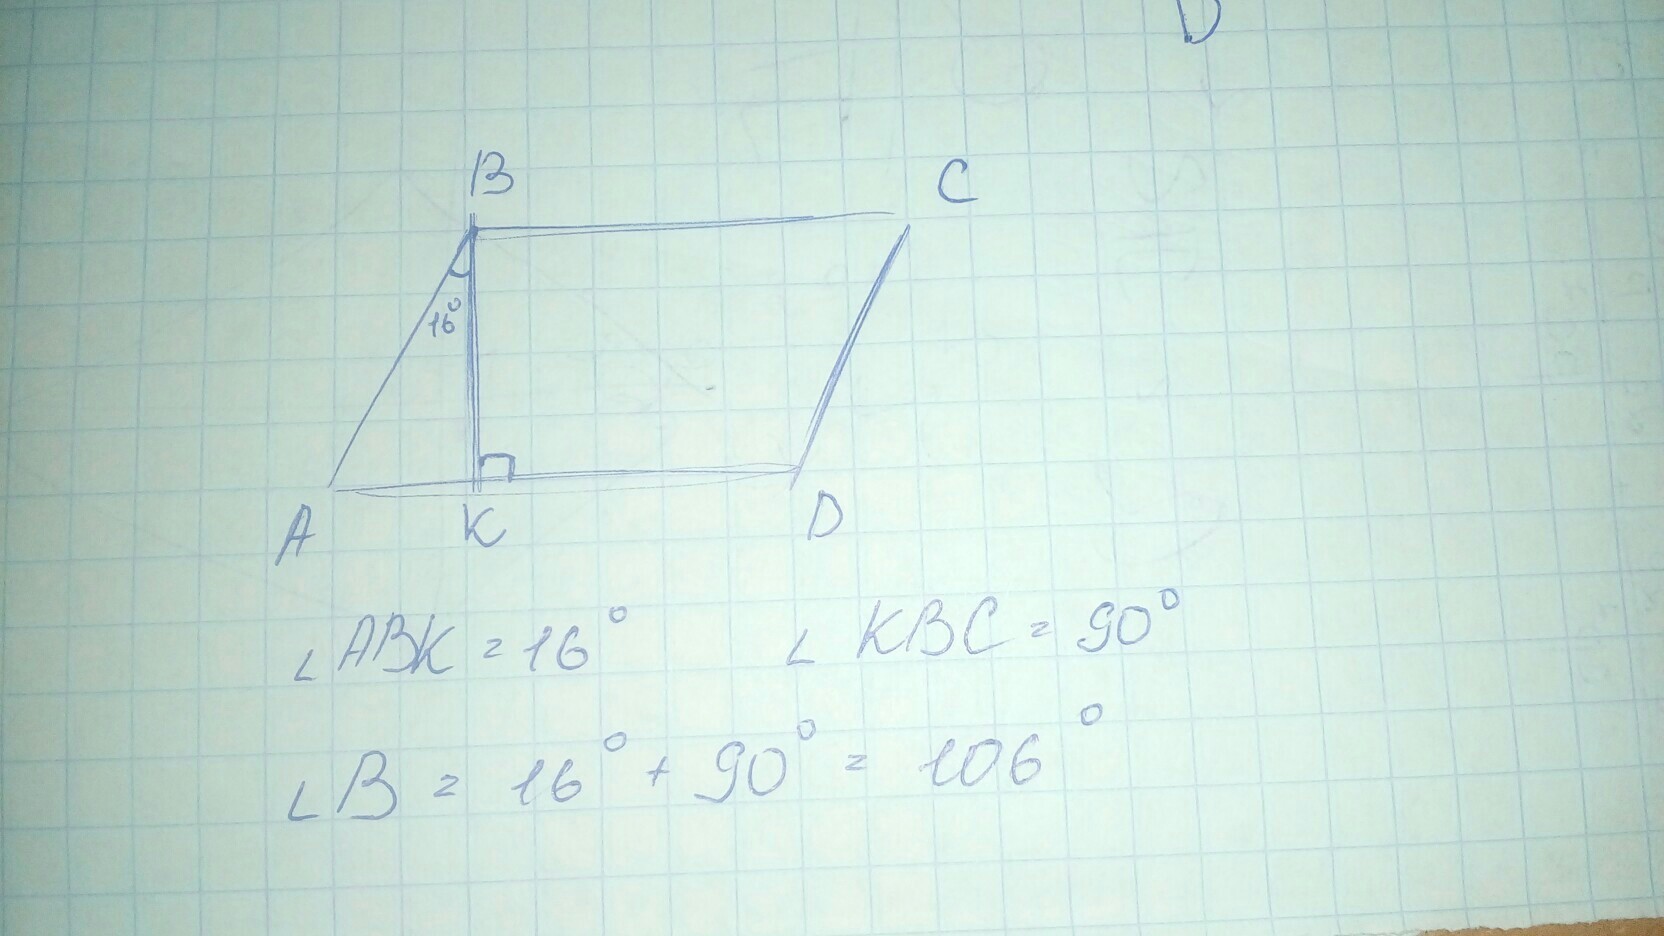 D
B C
16°
A K D
∠ABK = 16° ∠KBC = 90°
∠B = 16° + 90° = 106°